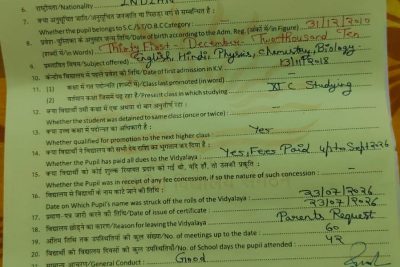 6. राष्ट्रीयता/Nationality INDIAN
7. क्या अनुसूचित जाति/अनुसूचित जनजाति या पिछड़ा वर्ग से सम्बन्धित है :
Whether the pupil belongs to S.C./S.T./O.B.C. Category :
8. प्रवेश पुस्तिका के अनुसार जन्म तिथि/Date of birth according to the Adm. Reg. (अंकों में/in Figure) 31/12/2010
(शब्दों में/in Words) Thirty First - December - Two thousand Ten
9. प्रस्तावित विषय/Subject offered English, Hindi, Physics, Chemistry, Biology
10. केन्द्रीय विद्यालय में पहले प्रवेश की तिथि/Date of first admission in K.V. 13/11/2018
11. (1) कक्षा में गत पदोन्नति (शब्दों में)/Class last promoted (in word)
(2) वर्तमान कक्षा जिसमें पढ़ रहा है/Present class in which studying XI C Studying
12. क्या विद्यार्थी उसी कक्षा में एक अथवा दो बार अनुत्तीर्ण रहा :
Whether the student was detained to same class (once or twice)
13. क्या उच्च कक्षा में पदोन्नति का अधिकारी है :
Whether qualified for promotion to the next higher class Yes
14. क्या विद्यार्थी ने विद्यालय की सभी देय राशि का भुगतान कर दिया है?
Whether the Pupil has paid all dues to the Vidyalaya : Yes, Fees Paid upto Sept 2026
15.
Whether the Pupil was in receipt of any fee concession, if so the nature of such concession :
16. विद्यालय से विद्यार्थी का नाम काटे जाने की तिथि/
Date on Which Pupil's name was struck off the rolls of the Vidyalaya 23/07/2026
17. प्रमाण-पत्र जारी करने की तिथि/Date of issue of certificate : 23/07/2026
18. विद्यालय छोड़ने का कारण/Reason for leaving the Vidyalaya Parents Request
19. अंतिम तिथि तक उपस्थितियों की कुल संख्या/No. of meetings up to the date : 60
20. विद्यार्थी की विद्यालय दिवसों की कुल उपस्थितियाँ/No. of School days the pupil attended : 42
सामान्य आचरण/General Conduct : Good